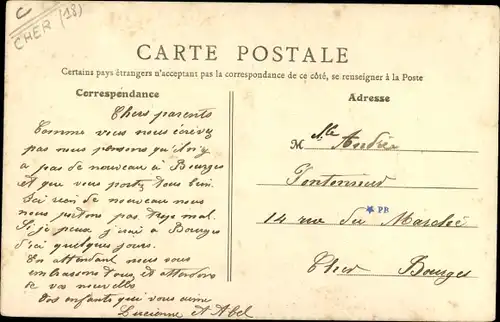 C
CHER (18)
CARTE POSTALE
Certains pays étrangers n'acceptant pas la correspondance de ce côté, se renseigner à la Poste
Correspondance
Adresse
Chers parents
Comme vous nous écrivez
pas nous pensons qu'il n'y
a pas de nouveau à Bourges
et que vous portez tous bien.
Ici rien de nouveau nous
nous portons pas trop mal.
Si je peux j'irai à Bourges
d'ici quelques jours.
En attendant nous vous
embrassons tous, et attendons
de vos nouvelles
Vos enfants qui vous aime
Lucienne et Abel
Mlle Andrée
14 rue du Marché
PB
Cher Bourges